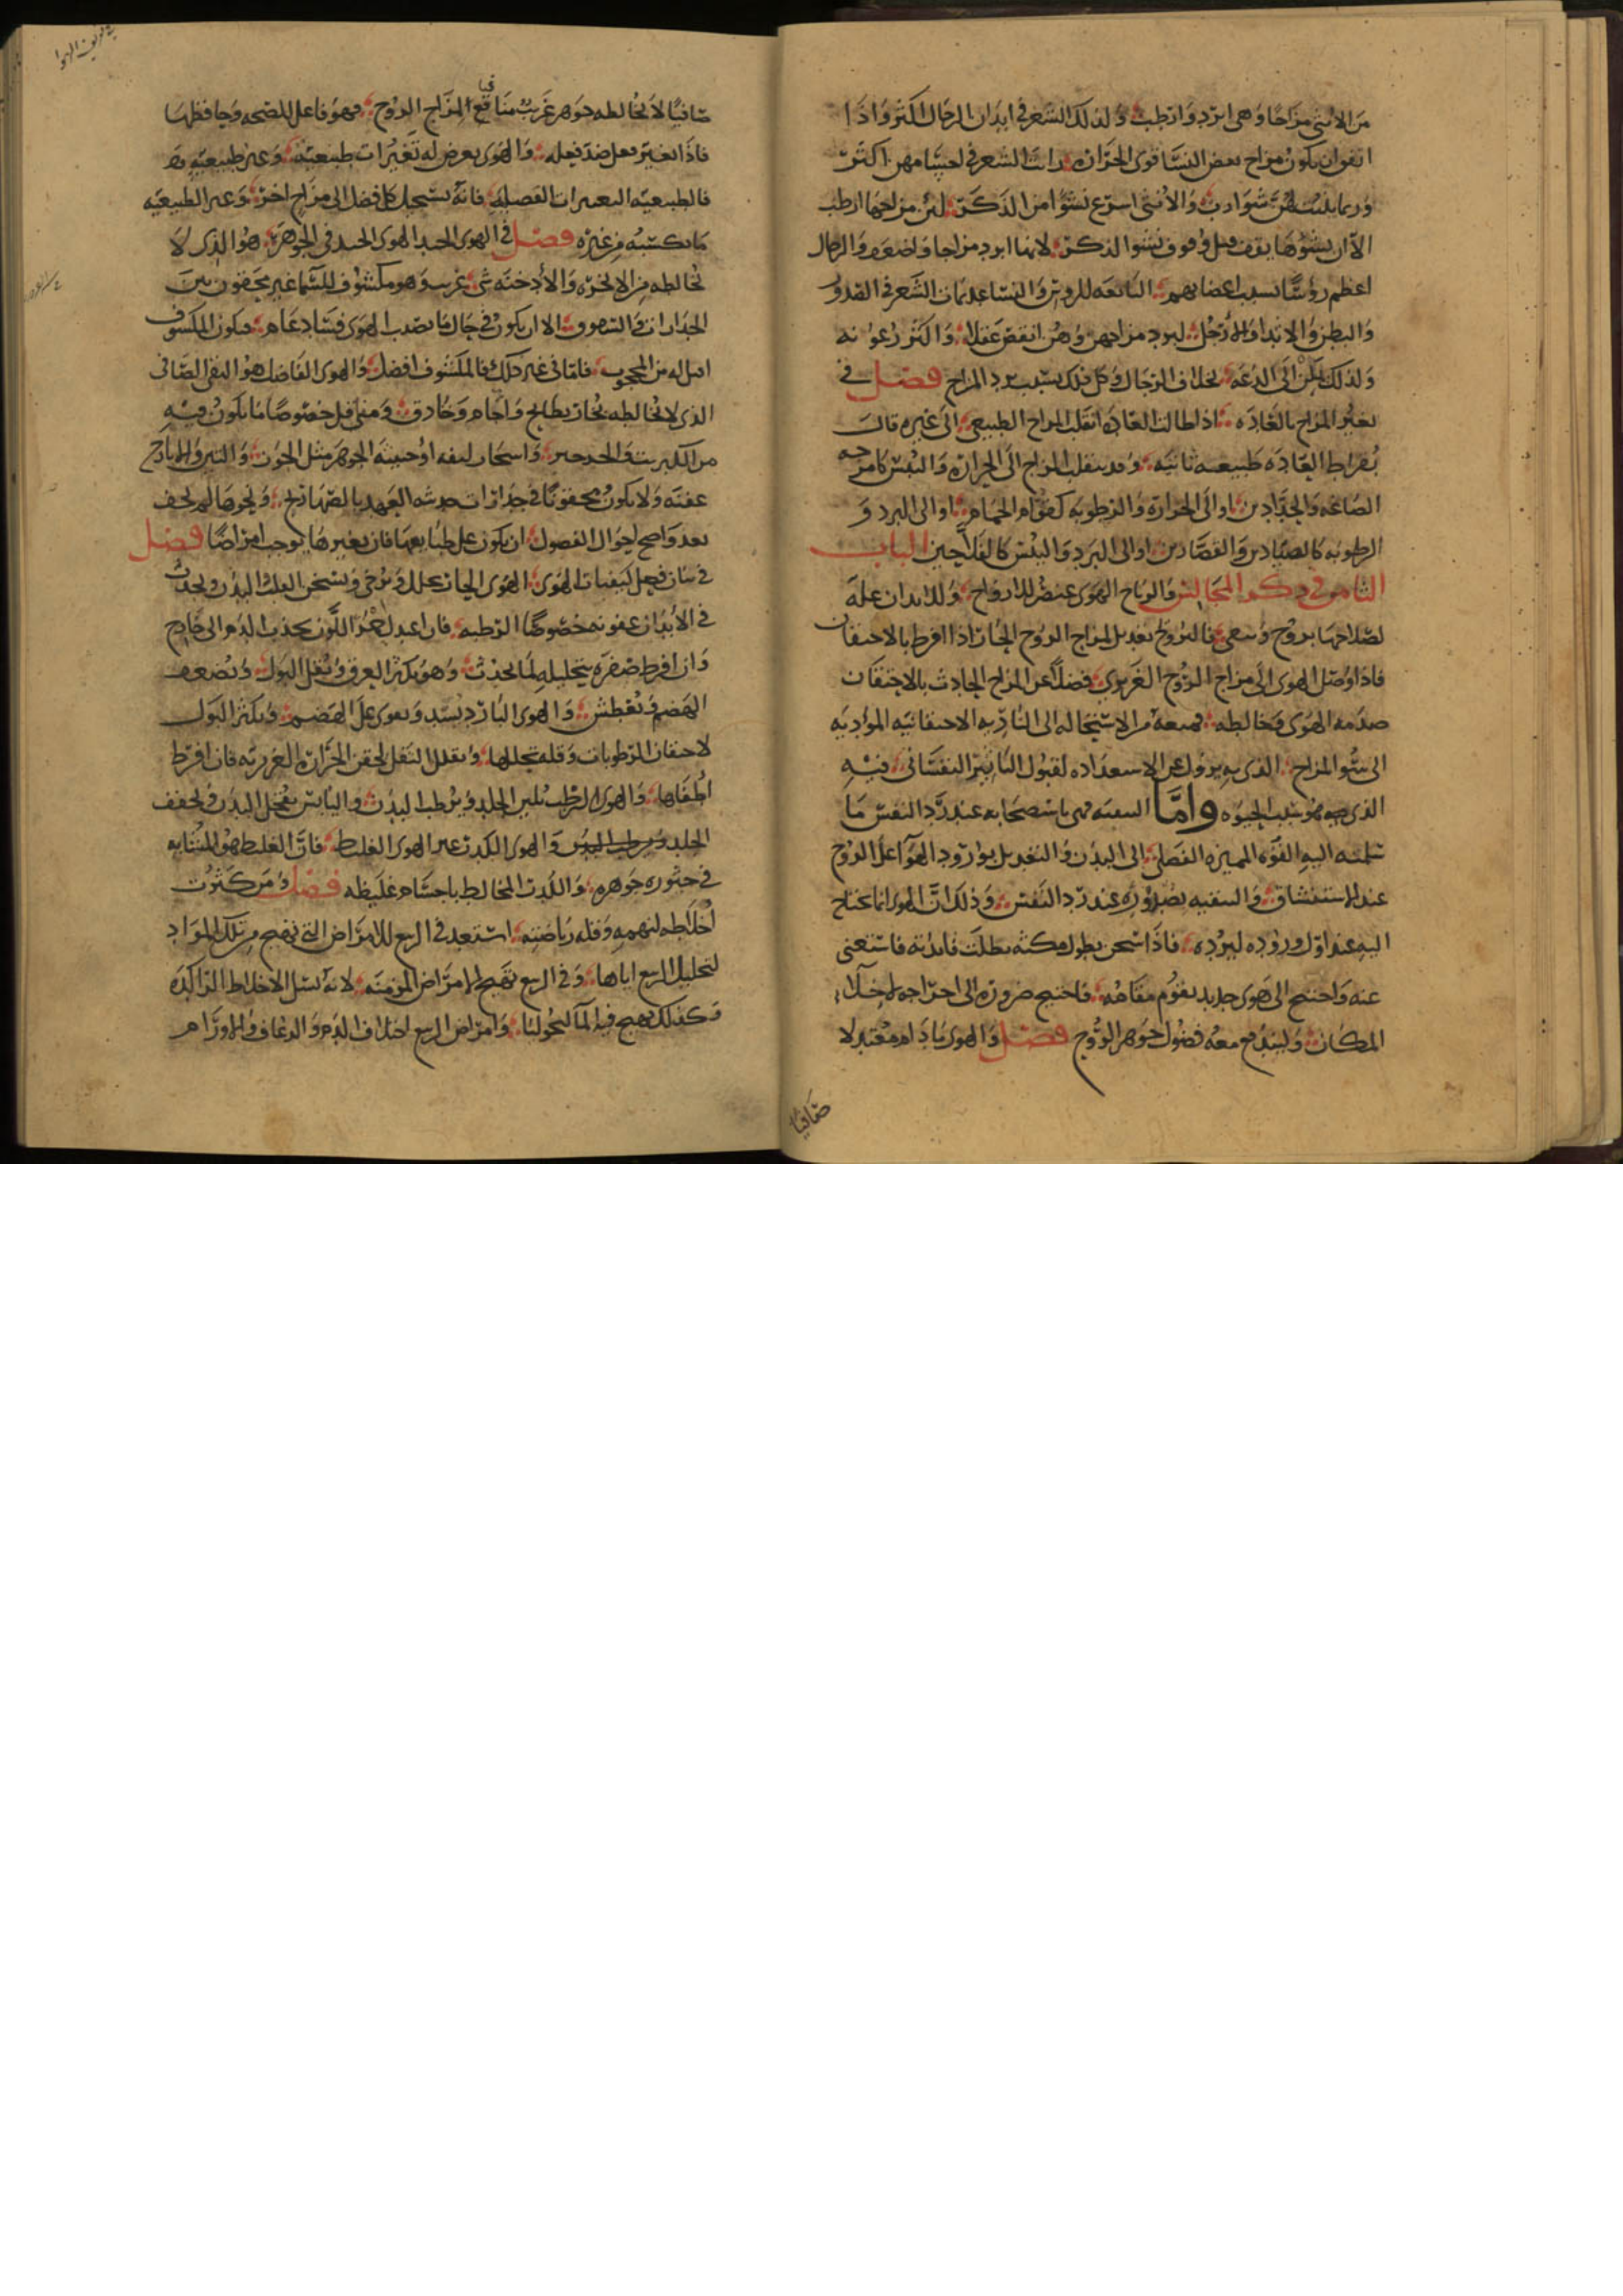 من الانثى مزاجا وهى ابرد وارطب ولذلك الشعر فى ابدان الرجال اكثر واذا
اتفق ان يكون مزاج بعض النسا قوى الحراره رات الشعر فى لحيتها مهن اكثر
وربما نبتت لهن شوارب والانثى اسرع نشوا من الذكر لين مزاجها ارطب
الا ان نشوها يقف قبل وقوف نشو الذكر لانها ابرد مزاجا واضعف والرجال
اعظم رؤسا بسبب اعضايهم التابعه للرووس والنسا عديمات الشعر فى الصدور
والبطن والايدا والارجل لبرد مزاجهن وهن انقص عقلا واكثر رعونه
ولذلك يملن الى الدعه بخلاف الرجال وكل ذلك بسبب برد المزاج فصل فى
تغير المزاج بالعاده اذا طالت العاده انقلب المزاج الطبيعى الى غيره قال
بقراط العاده طبيعه ثانيه وقد ينقلب المزاج الى الحراره واليبس كامزجه
الصاغه والحدادين او الى الحراره والرطوبه كقوام الحمام او الى البرد و
الرطوبه كالصيادين والقصارين او الى البرد واليبس كالفلاحين الباب
الثامن فى ذكر المجالس والرياح الهوى عنصر للارواح وللابدان عله
لصلاحها بروح وتنقى فالتروح تعديل لمزاج الروح الحار اذا افرط بالاحتقان
فاذا وصل الهوى الى مزاج الروح الغريزى فضلا عن المزاج الحادث بالاحتقان
صدمه الهوى وخالطه فمنعه من الاستحاله الى الناريه الاحتقانيه الموديه
الى سو المزاج الذى به يزول عن الاستعداده لقبول التاثير النفسانى فيه
الذى هو سبب الحيوه واما التنقيه فهى باستصحابه عند رد النفس ما
تسلمه اليه القوه المميزه الفصلى الى البدن والتعديل بورود الهوا على الروح
عند الاستنشاق والتنقيه بصدوره عند رد النفس وذلك ان الهوى انما يحتاج
اليه عند اول وروده لبرده فاذا سخن بطول مكثه بطلت فائدته فاستغنى
عنه واحتيج الى هوى جديد يقوم مقامه فاحتيج ضروره الى اخراجه لاخلا
المكان وليندفع معه فضول جوهر الروح فصل والهوى مادام معتدلا
صافيا
صافيا لا يخالطه جوهر غريب مناقع لمزاج الروح فهو فاعل للصحه وحافظها
فاذا تغير فعل ضد فعله والهوى يعرض له تغيرات طبيعيه وغير طبيعيه
فالطبيعيه التغيرات الفصليه فانه يستحيل كل فصل الى مزاج اخر وغير الطبيعيه
ما يكسبه من غيره فصل فى الهوى الجيد الهوى الجيد فى الجوهر هو الذى لا
يخالطه من الابخره والادخنه شى غريب وهو مكشوف للسما غير محقون بين
الجدارات والسقوف الا ان يكون فى حال ما يصيب الهوى فساد عام فيكون المكشوف
اقبل له من المحجوب فاما فى غير ذلك فالمكشوف افضل والهوى الفاضل هو النقى الصافى
الذى لا يخالطه بخار بطايح واجام وخنادق ومنى قل خصوصا ما يكون فيه
من الكبريت والجرجير واشجار لبقه او خبيثه الجوهر مثل الجوز والتين وارياح
عفنه ولا يكون محقونا فى جدارات حديثه العهد بالصهاريج ونحوها لم تجف
بعد واصح احوال الفصول ان يكون على طبايعها فان تغيرها يوجب امراضا فصل
فى بيان فعل كيفيات الهوى الهوى الحار يحلل ويرخى ويسخن القلب البدن ويحدث
فى الابدان عفونه خصوصا الرطبه فان اعتدل حمر اللون بجذب الدم الى خارج
وان افرط صفره بتحليله لما يحدث وهو يكثر العرق ويقلل البول ويضعف
الهضم ويعطش والهوى البارد يشد ويقوى على الهضم ويكثر البول
لاحتقان الرطوبات وقله تحللها ويقلل الثفل لحقن الحراره الغريزيه فان افرط
اطفاها والهوى الرطب يلين الجلد ويرطب البدن واليابس يقحل البدن ويجفف
الجلد والهوى الكدر غير الهوى الغليظ فان الغليظ هو المتشابه
فى خثوره جوهره والكدر المخالط باجسام غليظه فصل ومن كثرت
اخلاطه لنهمه وقله رياضته استعد فى الربع للامراض التى تهيج من تلك المواد
لتحليل الربيع اياها وفى الربيع تهيج الامراض المزمنه لانه يسيل الاخلاط الراكده
وكذلك يهيج فيه المالنخوليا وامراض الربيع اختلاف الدم والرعاف والاورام